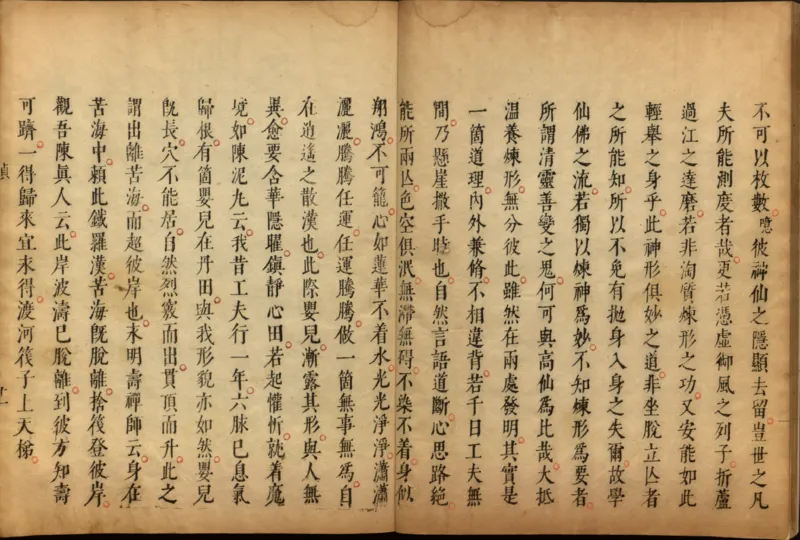 不可以枚數噫彼神仙之隱顯去留豈世之凡
夫所能測度者哉更若憑虛御風之列子折蘆
過江之達磨若非淘質練形之功又安能如此
輕舉之身乎此神形俱妙之道非坐脫立亾者
之所能知所以不免有拋身入身之失爾故學
仙佛之流若獨以練神爲妙不知練形爲要者
所謂清靈善變之鬼何可與高仙爲比哉大抵
溫養練形無分彼此雖然在兩處發明其實是
一箇道理內外兼脩不相違背若千日工夫無
間乃懸崖撒手時也自然言語道斷心思路絶
能所兩亾色空俱泯無滯無碍不染不着身似
翔鴻不可籠心如蓮華不着水光光淨淨瀟瀟
灑灑騰騰任運任運騰騰做一箇無事無爲自
在逍遙之散漢也此際嬰兒漸露其形與人無
異愈要含華隱曜鎮靜心田若起懽忻就着魔
境如陳泥丸云我昔工夫行一年六脉已息氣
歸根有箇嬰兒在丹田與我形貌亦如然嬰兒
旣長穴不能居自然烈竅而出貫頂而升此之
謂出離苦海而超彼岸也末明壽禪師云身在
苦海中賴此鐵羅漢苦海旣脫離捨筏登彼岸
觀吾陳眞人云此岸波濤已脫離到彼方知壽
可躋一得歸來宜末得渡河筏子上天梯